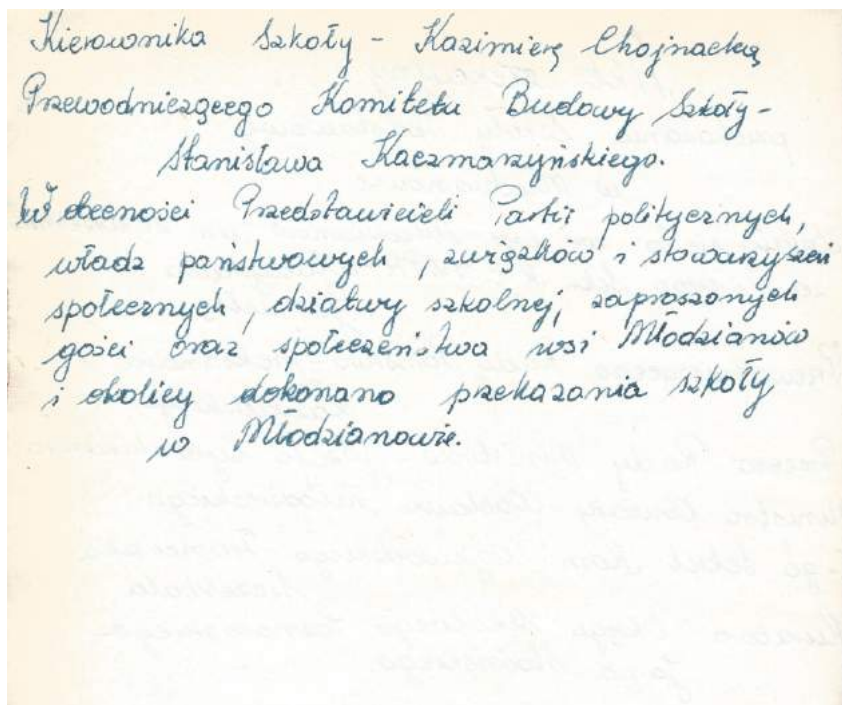 Kierownika Szkoły - Kazimierę Chojnacką
Przewodniczącego Komitetu Budowy Szkoły -
Stanisława Kaczmarzyńskiego.
W obecności Przedstawicieli Partii politycznych,
władz państwowych, związków i stowarzyszeń
społecznych, dziatwy szkolnej, zaproszonych
gości oraz społeczeństwa wsi Młodzianów
i okolicy dokonano przekazania szkoły
w Młodzianowie.